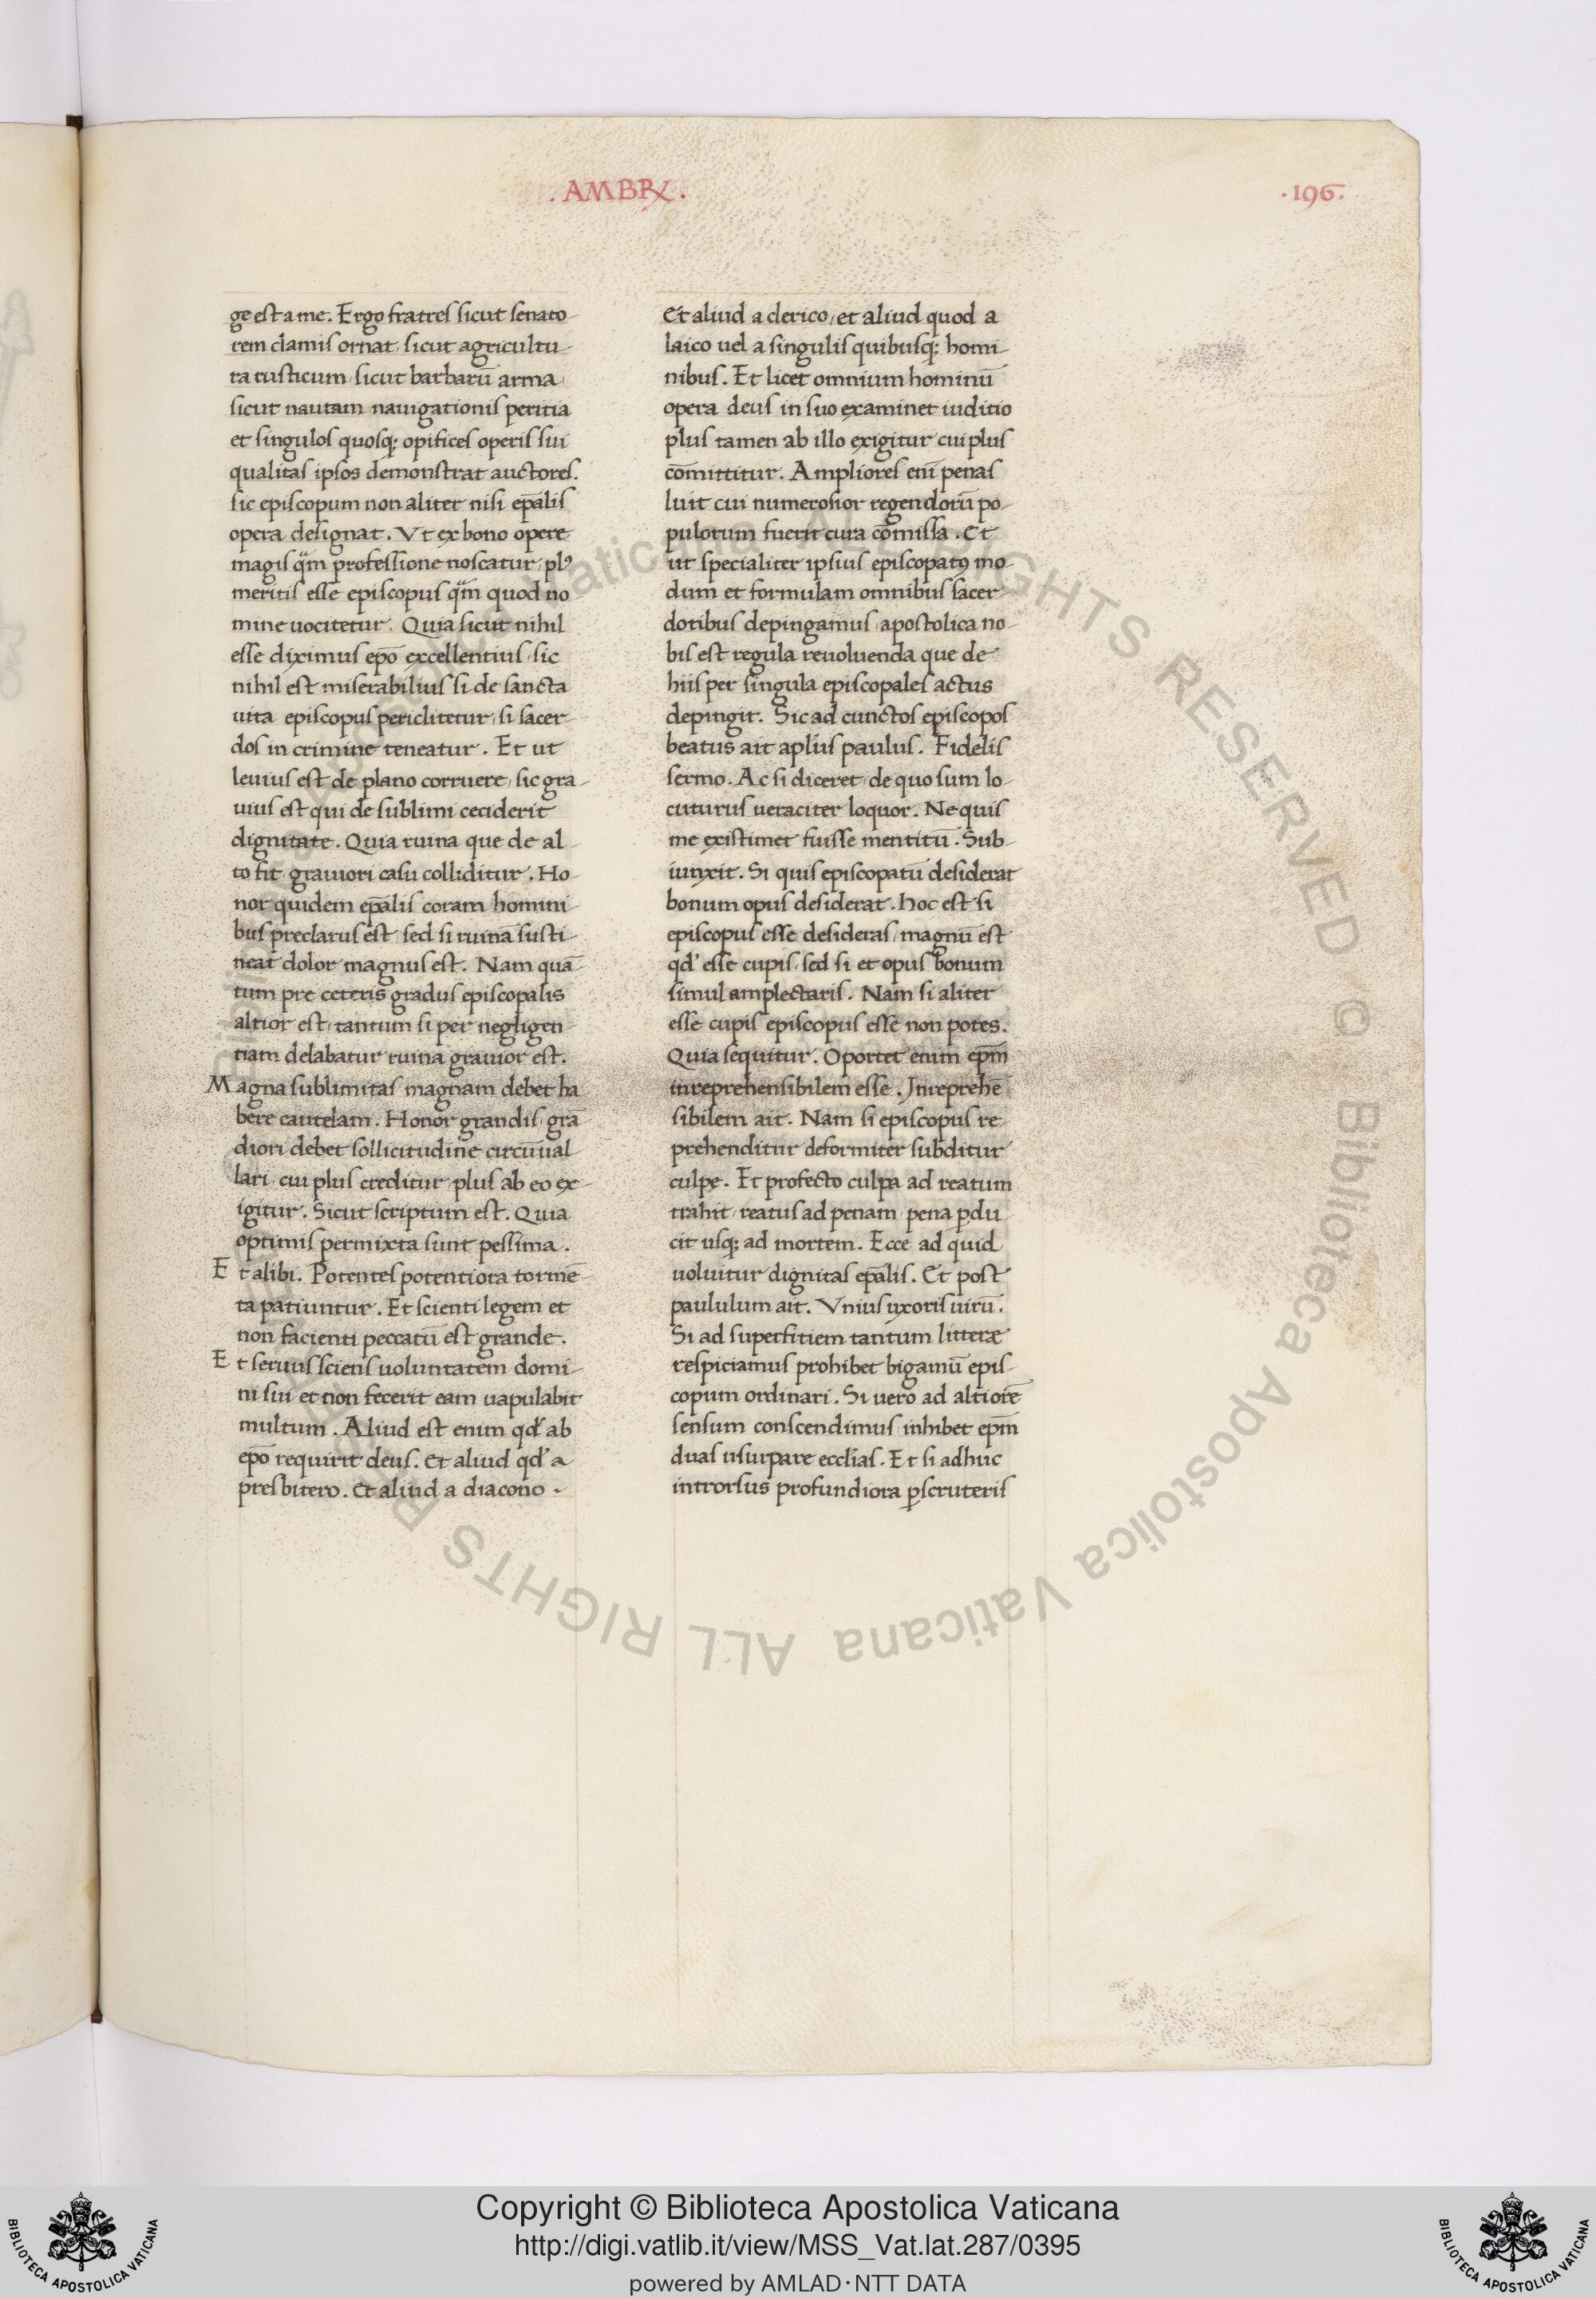 .AMBRX.
.196.
ge est a me. Ergo fratres sicut senato-
rem clamis ornat, sicut agricultu-
ra rusticum, sicut barbarū arma,
sicut nautam nauigationis peritia
et singulos quosq; opifices operis sui
qualitas ipsos demonstrat auctores.
sic episcopum non aliter nisi ep̄alis
opera designat. Vt ex bono opere
magis qͣm professione noscatur, plꝰ
meritis esse episcopus qͣm quod no-
mine uocitetur. Quia sicut nihil
esse diximus ep̄o excellentius, sic
nihil est miserabilius si de sancta
uita episcopus periclitetur, si sacer-
dos in crimine teneatur. Et ut
leuius est de plano corruere, sic gra-
uius est qui de sublimi ceciderit
dignitate. Quia ruina que de al-
to fit, grauiori casu colliditur. Ho-
nor quidem ep̄alis coram homini-
bus preclarus est, sed si ruinā susti-
neat dolor magnus est. Nam quā-
tum pre ceteris gradus episcopalis
altior est, tantum si per negligen-
tiam delabatur ruina grauior est.
Magna sublimitas magnam debet ha-
bere cautelam. Honor grandis, grā-
diori debet sollicitudine circūual-
lari, cui plus creditur, plus ab eo ex-
igitur. Sicut scriptum est. Quia
optimis permixta sunt pessima.
Et alibi. Potentes potentiora tormē-
ta patiuntur. Et scienti legem et
non facienti peccatū est grande.
Et seruus sciens uoluntatem domi-
ni sui et non fecerit eam uapulabit
multum. Aliud est enim qd' ab
ep̄o requirit deus. Et aliud qd' a
presbitero. Et aliud a diacono -
Et aliud a clerico, et aliud quod a
laico uel a singulis quibusq; homi-
nibus. Et licet omnium hominū
opera deus in suo examinet iuditio
plus tamen ab illo exigitur cui plus
cōmittitur. Ampliores enī penas
luit cui numerosior regendorū po-
pulorum fuerit cura cōmissa. Et
ut specialiter ipsius episcopatꝰ mo-
dum et formulam omnibus sacer-
dotibus depingamus, apostolica no-
bis est regula reuoluenda que de
hiis per singula episcopales actus
depingit. Sic ad cunctos episcopos
beatus ait apl'us paulus. Fidelis
sermo. Ac si diceret, de quo sum lo-
cuturus ueraciter loquor. Ne quis
me existimet fuisse mentitū. Sub-
iunxit. Si quis episcopatū desiderat
bonum opus desiderat. hoc est si
episcopus esse desideras, magnū est
qd' esse cupis, sed si et opus bonum
simul amplectaris. Nam si aliter
esse cupis episcopus esse non potes.
Quia sequitur. Oportet enim ep̄m
inreprehensibilem esse. Inreprehē-
sibilem ait. Nam si episcopus re-
prehenditur deformiter subditur
culpe. Et profecto culpa ad reatum
trahit, reatus ad penam, pena ꝑdu-
cit usq; ad mortem. Ecce ad quid
uoluitur dignitas ep̄alis. Et post
paululum ait. Vnius uxoris uirū.
Si ad superfitiem tantum litteræ
respiciamus prohibet bigamū epis-
copum ordinari. Si uero ad altiorē
sensum conscendimus, inhibet ep̄m
duas usurpare eccl'ias. Et si adhuc
introrsus profundiora ꝑscruteris
© Biblioteca Apostolica Vaticana ALL RIGHTS RESERVED © Biblioteca Apostolica Vaticana ALL RIGHTS RESERVED
Copyright © Biblioteca Apostolica Vaticana
http://digi.vatlib.it/view/MSS_Vat.lat.287/0395
powered by AMLAD·NTT DATA
BIBLIOTECA APOSTOLICA VATICANA
BIBLIOTECA APOSTOLICA VATICANA